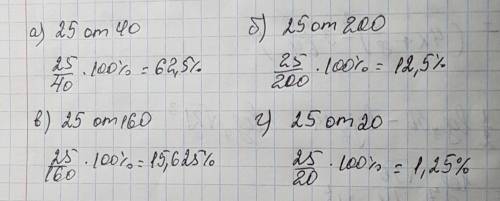 а) 25 от 40
25/40 · 100% = 62,5%
б) 25 от 200
25/200 · 100% = 12,5%
в) 25 от 160
25/160 · 100% = 15,625%
г) 25 от 20
25/20 · 100% = 1,25%